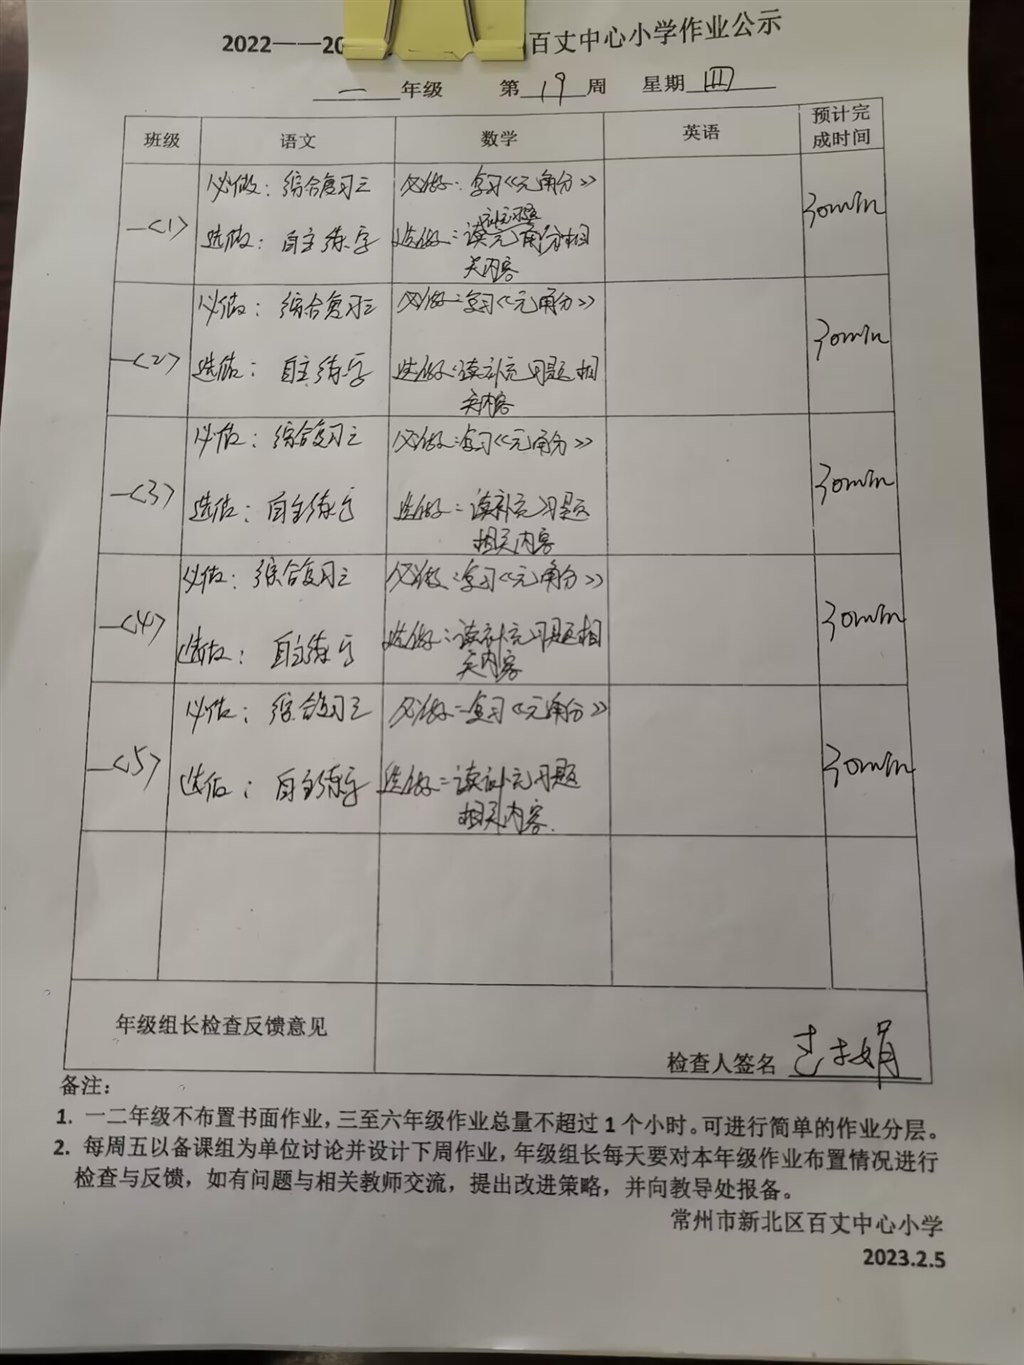 2022——20 百丈中心小学作业公示
一 年级 第 19 周 星期 四
班级 语文 数学 英语 预计完成时间
一<1> 必做：综合复习三 必做：复习《元角分》 30min
选做：自主练字 选做：读补充习题元角分相
关内容
一<2> 必做：综合复习三 必做：复习《元角分》 30min
选做：自主练字 选做：读补充习题相
关内容
一<3> 必做：综合复习三 必做：复习《元角分》 30min
选做：自主练字 选做：读补充习题
相关内容
一<4> 必做：综合复习三 必做：复习《元角分》 30min
选做：自主练字 选做：读补充习题相
关内容
一<5> 必做：综合复习三 必做：复习《元角分》 30min
选做：自主练字 选做：读补充习题
相关内容.
年级组长检查反馈意见
检查人签名
备注：
1. 一二年级不布置书面作业，三至六年级作业总量不超过 1 个小时。可进行简单的作业分层。
2. 每周五以备课组为单位讨论并设计下周作业，年级组长每天要对本年级作业布置情况进行
检查与反馈，如有问题与相关教师交流，提出改进策略，并向教导处报备。
常州市新北区百丈中心小学
2023.2.5